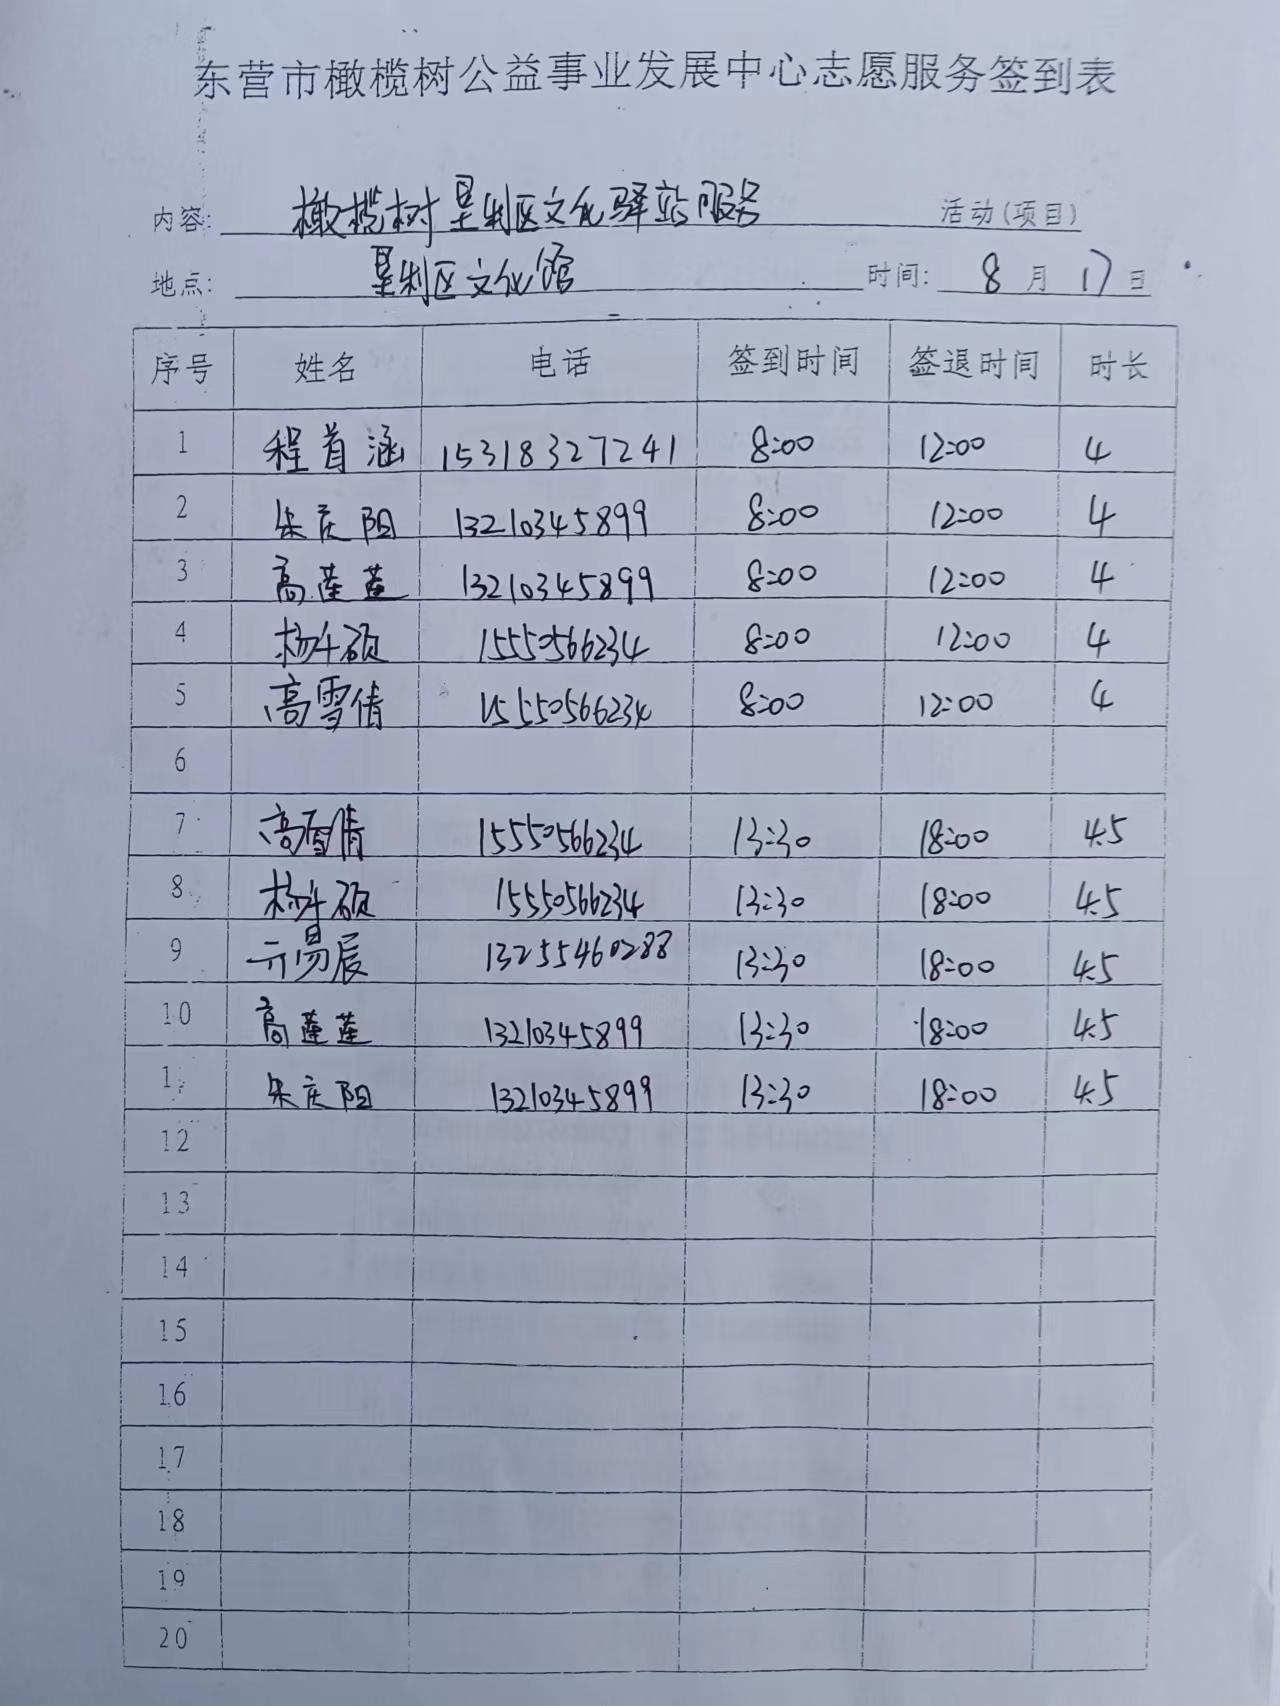 东营市橄榄树公益事业发展中心志愿服务签到表
内容: 橄榄树垦利区文化驿站服务 活动(项目)
地点: 垦利区文化馆 时间: 8月17日
序号 姓名 电话 签到时间 签退时间 时长
1 程首涵 15318327241 8:00 12:00 4
2 朱庆阳 13210345899 8:00 12:00 4
3 高莲莲 13210345899 8:00 12:00 4
4 杨午硕 15550566234 8:00 12:00 4
5 高雪倩 15550566234 8:00 12:00 4
6
7 高雪倩 15550566234 13:30 18:00 4.5
8 杨午硕 15550566234 13:30 18:00 4.5
9 亓易辰 13255460288 13:30 18:00 4.5
10 高莲莲 13210345899 13:30 18:00 4.5
1 朱庆阳 13210345899 13:30 18:00 4.5
12
13
14
15
16
17
18
19
20